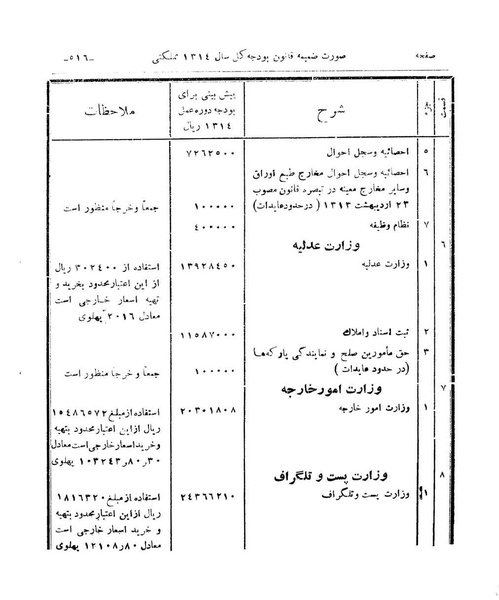 صفحه صورت ضمیمه قانون بودجه کل سال ۱۳۱٤ مملکتی -۵۱٦-
قسمت جزء شرح پیش بینی برای بودجه دوره عمل ۱۳۱٤ ریال ملاحظات
۵ احصائیه وسجل احوال ۷۲٦۲۵۰۰
٦ احصائیه وسجل احوال مخارج طبع اوراق
وسایر مخارج معینه در تبصره قانون مصوب
۲۳ اردیبهشت ۱۳۱۳ (درحدودعایدات) ۱۰۰۰۰۰ جمعاً وخرجاً منظور است
۷ نظام وظیفه ٤۰۰۰۰۰
٦ وزارت عدلیه
۱ وزارت عدلیه ۱۳۹۲۸٤۵۰ استفاده از ۳۰۲٤۰۰ ریال
از این اعتبارمحدود بخرید و
تهیه اسعار خارجی است
معادل ۲۰۱٦ پهلوی
۲ ثبت اسناد واملاک ۱۱۵۸۷۰۰۰
۳ حق مأمورین صلح و نمایندگی پارکه‌ها
(در حدود عایدات) ۱۰۰۰۰۰ جمعاً وخرجاً منظور است
۷ وزارت امورخارجه
۱ وزارت امور خارجه ۲۰۳۰۱۸۰۸ استفاده ازمبلغ ۱۵٤۸٦۵۷۲
ریال ازاین اعتبارمحدود بتهیه
وخریداسعارخارجی است معادل
۱۰۳۲٤۳٫۸۰٫۳۰ پهلوی
۸ وزارت پست و تلگراف
۱ وزارت پست وتلگراف ۲٤۳٦٦۲۱۰ استفاده ازمبلغ ۱۸۱٦۳۲۰
ریال ازاین اعتبار محدود بتهیه
و خرید اسعار خارجی است
معادل ۱۲۱۰۸٫۸۰ پهلوی